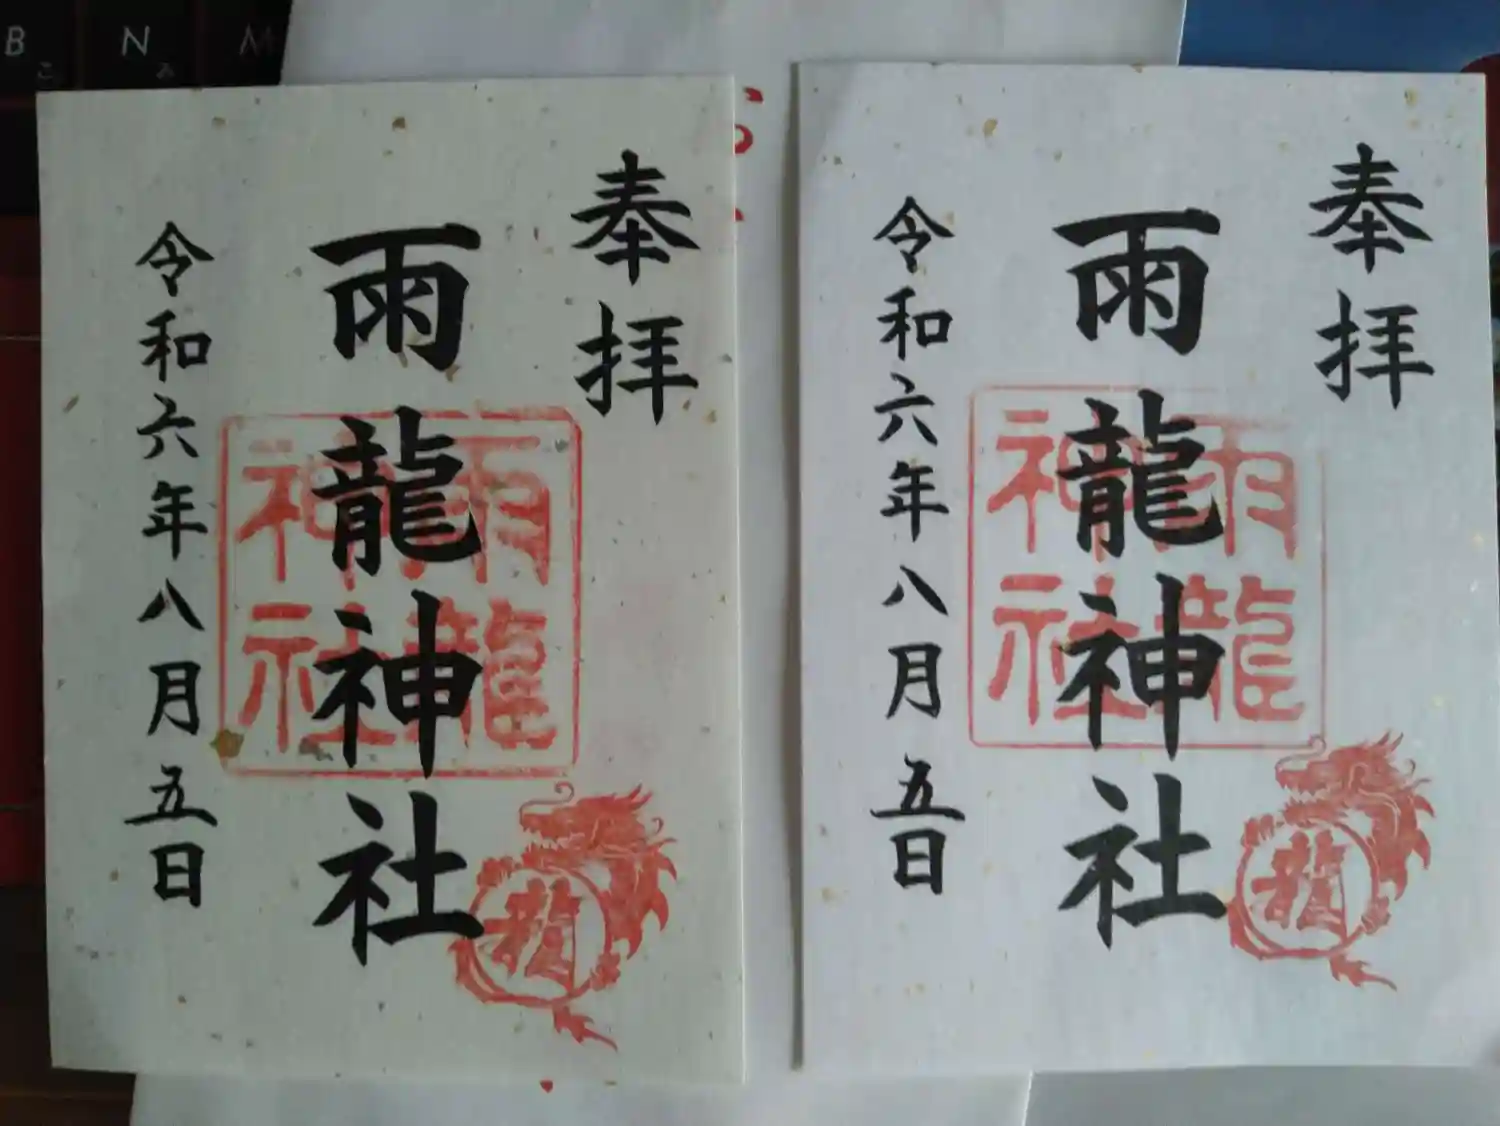 奉拝
雨龍神社
令和六年八月五日
雨龍
神社
龍
奉拝
雨龍神社
令和六年八月五日
雨龍
神社
龍
B
こ
N
み
M